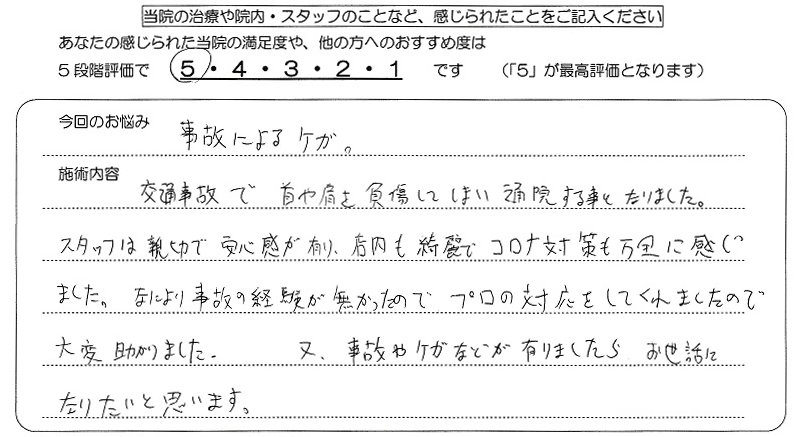 当院の治療や院内・スタッフのことなど、感じられたことをご記入ください
あなたの感じられた当院の満足度や、他の方へのおすすめ度は
５段階評価で　５・４・３・２・１　です　（「５」が最高評価となります）
今回のお悩み　事故によるケガ。
施術内容　交通事故で首や肩を負傷してしまい通院する事となりました。
スタッフは親切で安心感が有り、店内も綺麗でコロナ対策も万全に感じ
ました。なにより事故の経験が無かったのでプロの対応をしてくれましたので
大変助かりました。又、事故やケガなどが有りましたらお世話に
なりたいと思います。